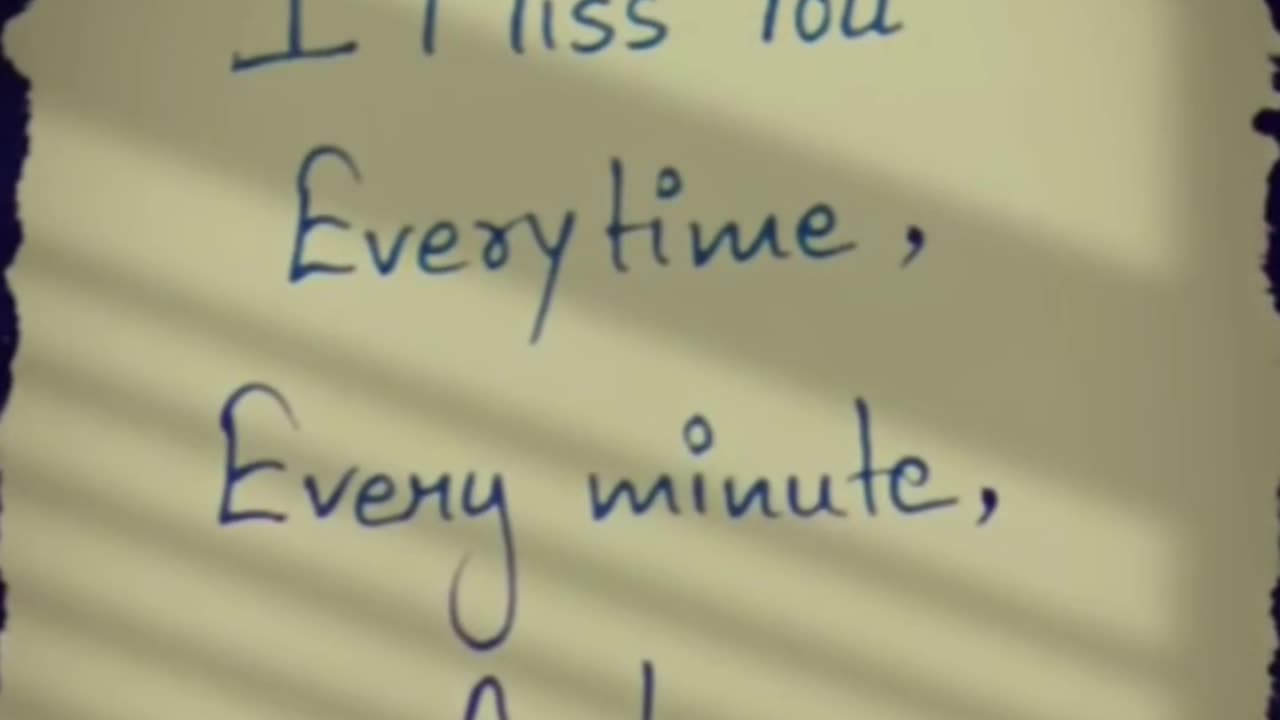 I Miss You
Everytime,
Every minute,